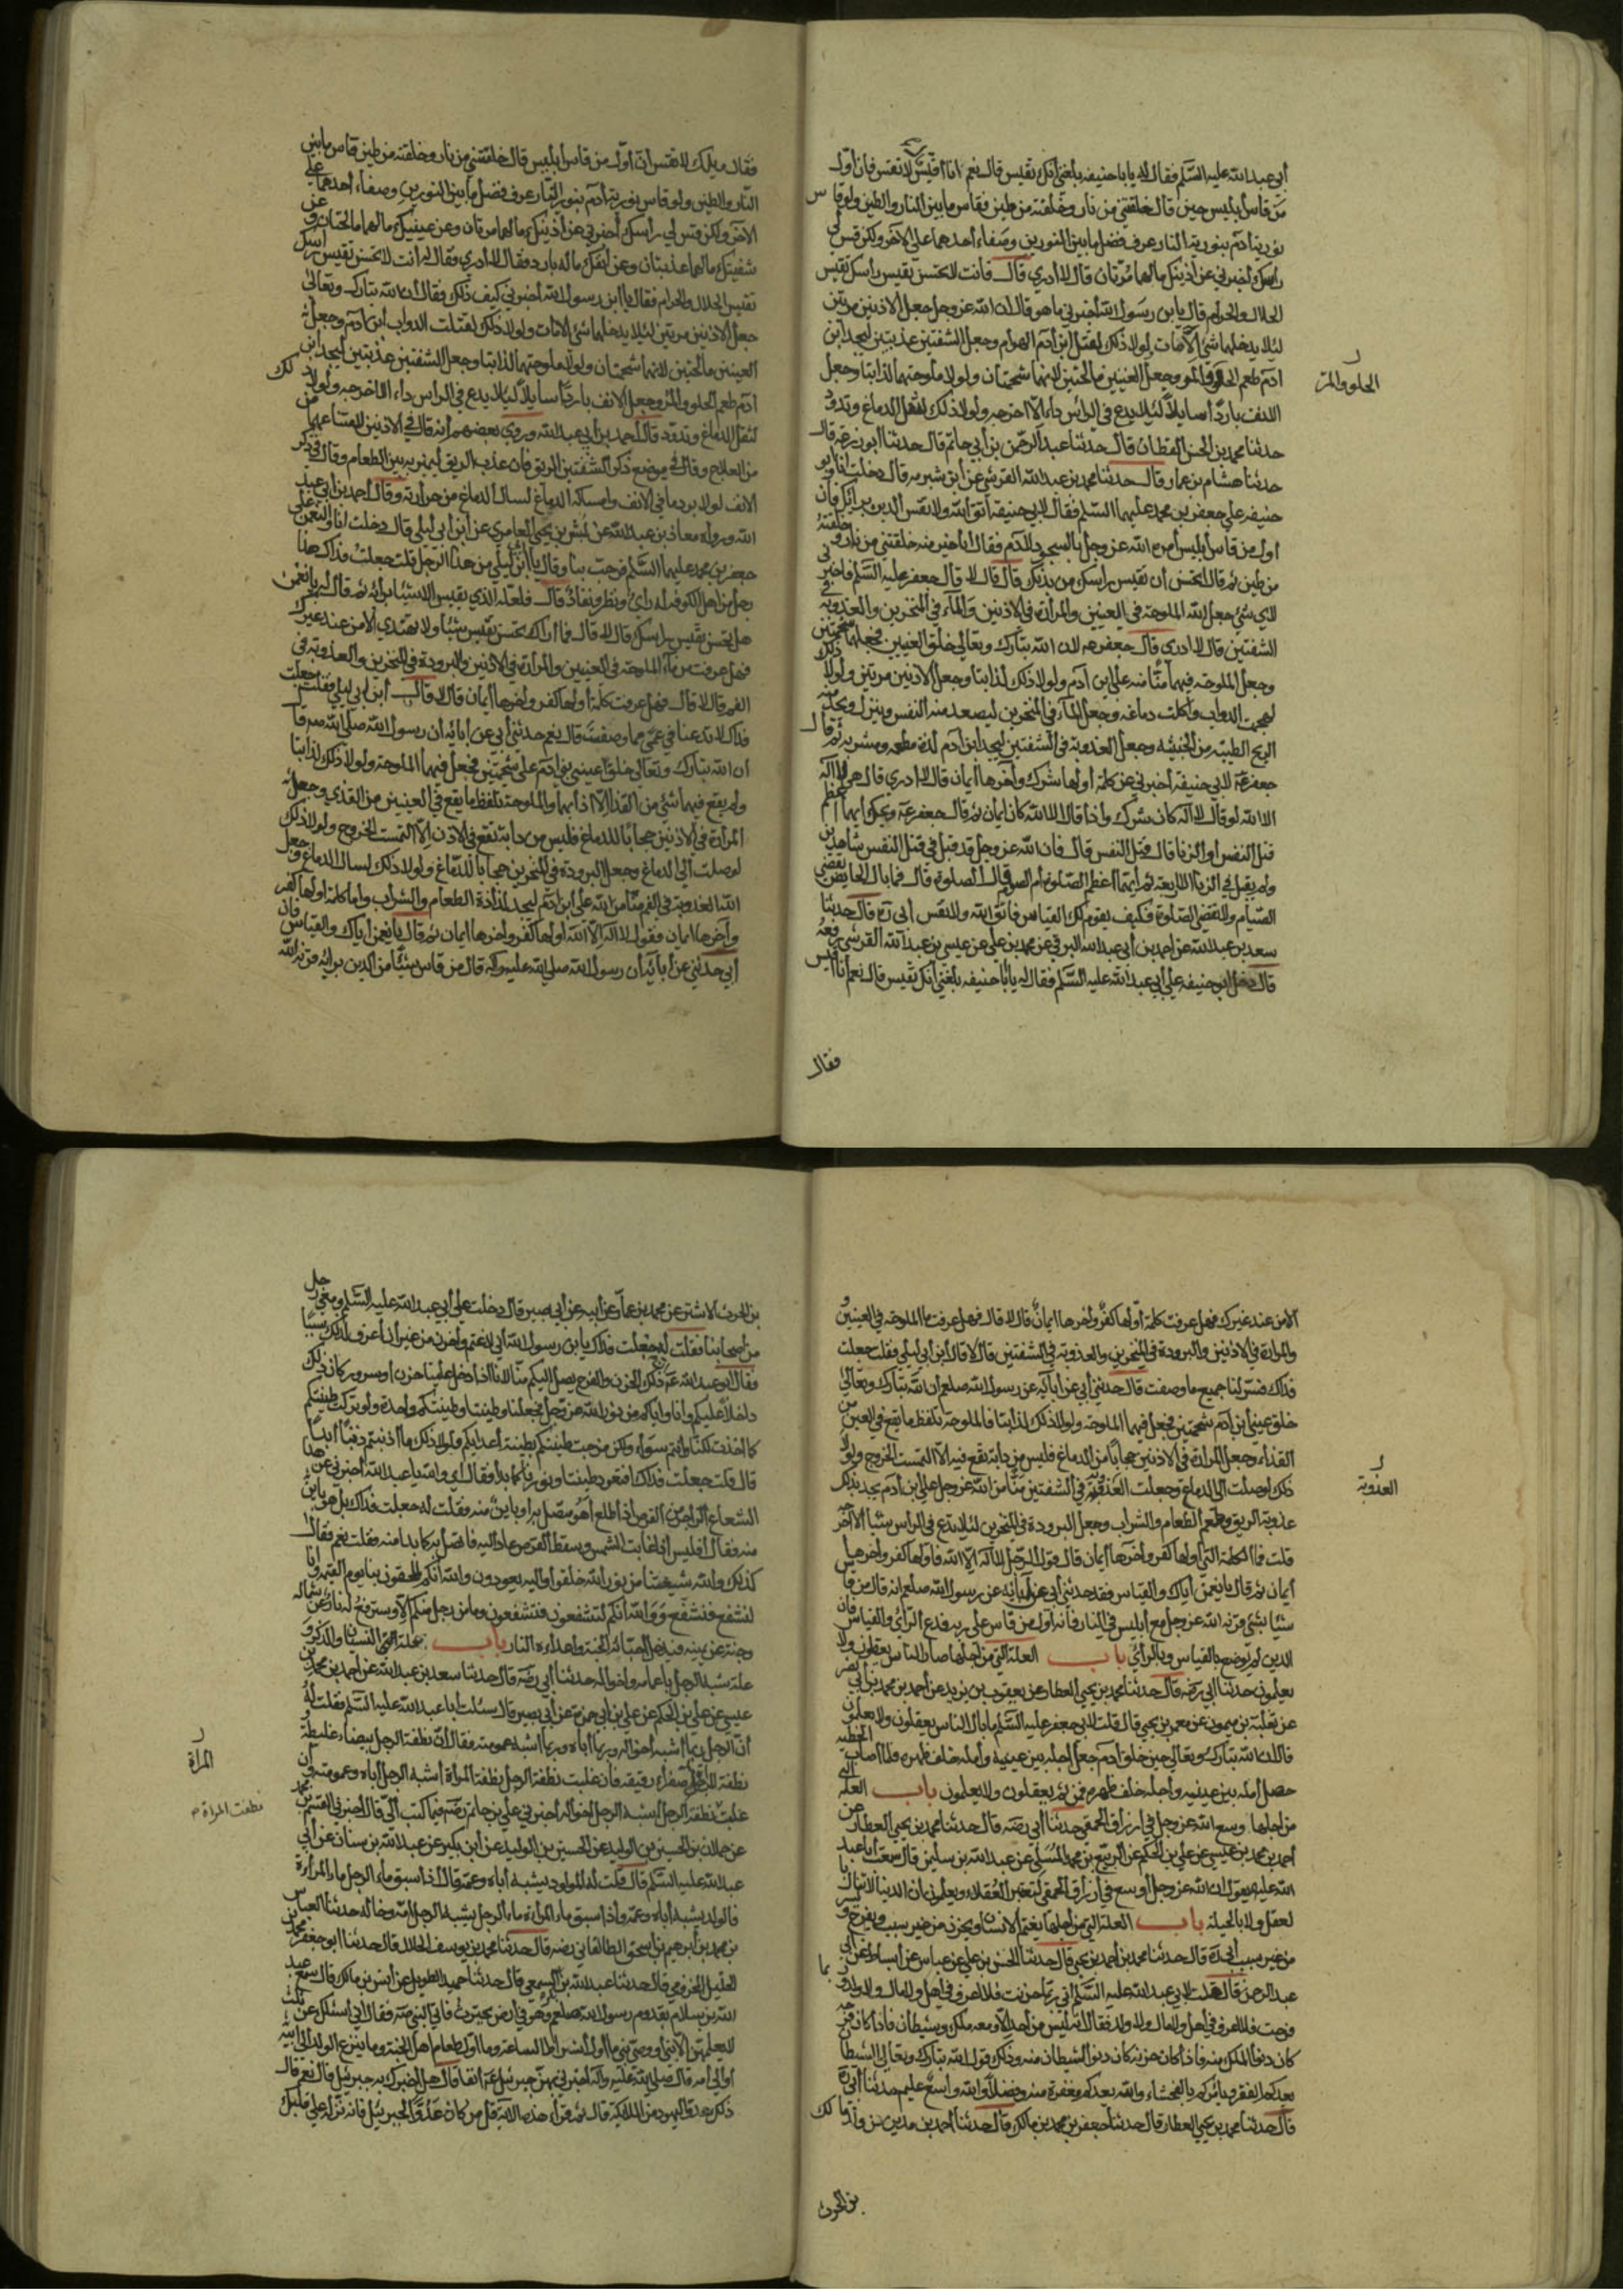 أبي عبد الله عليه السلام فقال له يا با حنيفه بلغني أنك تقيس قال نعم انا أقيس لا تقس فان أول
من قاس أبليس حين قال خلقتني من نار وخلقته من طين فقاس ما بين النار والطين ولو قاس
نورية آدم بنورية النار عرف فضل ما بين النورين وصفاء أحدهما على الآخر ولكن قس لي
راسك أخبرني عن أذنيك ما لهما مرتان قال لا أدري قال فانت لا تحسن تقيس راسك تقيس
الحلال والحرام قال يا بن رسول الله أخبرني ما هو قال ان الله عز وجل جعل الاذنين مرتين
لئلا يدخلهما شئ الا مات ولولا ذلك لقتل ابن آدم الهوام وجعل الشفتين عذبتين ليجد ابن
ادم طعم الحلو والمر وجعل العينين مالحتين لانهما شحمتان ولولا ملوحتهما لذابتا وجعل
الانف باردا سايلا لئلا يدع في الراس داء الا اخرجه ولولا ذلك لثقل الدماغ وتدود
حدثنا محمد بن الحسن القطان قال حدثنا عبد الرحمن بن أبي حاتم قال حدثنا ابو زرعة قال
حدثنا هشام بن عمار قال حدثنا محمد بن عبد الله القرشي عن ابن شبرمه قال دخلت انا وابو
حنيفه علي جعفر بن محمد عليهما السلام فقال لابي حنيفه اتق الله ولا تقس الدين برأيك فان
أول من قاس ابليس أمره الله عز وجل بالسجود لآدم فقال انا خير منه خلقتني من نار وخلقته
من طين ثم قال اتحسن أن تقيس راسك من بدنك قال قال لا قال جعفر عليه السلم فاخبرني
لاي شئ جعل الله الملوحة في العينين والمرارة في الاذنين والماء في المنخرين والعذوبه في
الشفتين قال لا ادري قال جعفر لان الله تبارك وتعالي خلق العينين فجعلهما شحمتين
وجعل الملوحه فيهما منا منه على ابن آدم ولولا ذلك لذابتا وجعل الاذنين مرتين ولولا ذلك
لهجمت الدواب واكلت دماغه وجعل الماء في المنخرين ليصعد منه النفس وينزل ويجد منه
الريح الطيبه من الخبيثه وجعل العذوبة في الشفتين ليجد ابن آدم لذة مطعمه ومشربه ثم قال
جعفر ع لابي حنيفه أخبرني عن كلمة أولها شرك وآخرها ايمان قال لا ادري قال هي لا اله
الا الله لو قال لا اله كان شرك واذا قال الا الله كان ايمان ثم قال جعفر ع ويحك ايهما اعظم
قتل النفس او الزنا قال قتل النفس قال فان الله عز وجل قد قبل في قتل النفس شاهدين
ولم يقبل في الزنا الا اربعة ثم ايهما اعظم الصلوة أم الصوم قال الصلوة قال فما بال الحايض تقضي
الصيام ولا تقضي الصلوة فكيف يقوم لك القياس فاتق الله ولا تقس أبي ره قال حدثنا
سعد بن عبد الله عن احمد بن أبي عبد الله البرقي عن محمد بن علي عن عيسى بن عبد الله القرشي رفعه
قال دخل ابو حنيفه علي أبي عبد الله عليه السلام فقال له يا أبا حنيفه بلغني أنك تقيس قال نعم أنا أقيس
فقال
الحلو والمر
فقال ويلك لا تقس ان أول من قاس أبليس قال خلقتني من نار وخلقته من طين قاس ما بين
النار والطين ولو قاس نورية آدم بنور النار عرف فضل ما بين النورين وصفاء أحدهما على
الآخر ولكن قس لي رأسك أخبرني عن أذنيك ما لهما مرتان وعن عينيك ما لهما مالحتان وعن
شفتيك ما لهما عذبتان وعن أنفك ماله بارد فقال لا أدري فقال له أنت لا تحسن تقيس رأسك
تقيس الحلال والحرام فقال يا ابن رسول الله أخبرني كيف ذلك فقال ان الله تبارك وتعالى
جعل الاذنين مرتين لئلا يدخلهما شئ الا مات ولولا ذلك لقتلت الدواب ابن آدم وجعل
العينين مالحتين لانهما شحمتان ولولا ملوحتهما لذابتا وجعل الشفتين عذبتين ليجد ابن
آدم طعم الحلو والمر وجعل الانف باردا سايلا لئلا يدع في الراس داء الا اخرجه ولولا ذلك
لثقل الدماغ وتدود قال أحمد بن أبي عبد الله وروى بعضهم أنه قال في الاذنين لامتناعهما
من العلاج وقال في موضع ذكر الشفتين الريق فان عذب الريق ليميز به بين الطعام وقال في ذكر
الانف لولا برد ما في الانف وامساكه الدماغ لسال الدماغ من حرارته وقال أحمد بن أبي عبد
الله ورواه معاذ بن عبد الله عن بشر بن يحيى العامري عن ابن أبي ليلى قال دخلت انا والنعمن على
جعفر بن محمد عليهما السلم فرحب بنا وقال يا ابن أبي ليلى من هذا الرجل قلت جعلت فداك هذا
رجل من اهل الكوفه له راى ونظر ونفاذ قال فلعله الذي يقيس الاشياء برأيه ثم قال له يا نعمن
هل تحسن تقيس راسك قال لا قال فما أراك تحسن تقيس شيئا ولا تهتدي الا من عند غيرك
فهل عرفت مما الملوحة في العينين والمرارة في الاذنين والبرودة في المنخرين والعذوبة في
الفم قال لا قال فهل عرفت كلمة أولها كفر وآخرها ايمان قال لا قال ابن ابي ليلى فقلت جعلت
فداك لا تدعنا في عمى مما وصفت قال نعم حدثني أبي عن آبائه أن رسول الله صلى الله عليه قال
ان الله تبارك وتعالى خلق عيني بني آدم على شحمتين فجعل فيهما الملوحة ولولا ذلك لذابتا
ولم يقع فيهما شئ من القذا الا اذابهما والملوحة تلفظ ما يقع في العينين من القذي وجعل
المرارة في الاذنين حجابا للدماغ فليس من دابة تقع في الاذن الا التمست الخروج ولولا ذلك
لوصلت الى الدماغ وجعل البرودة في المنخرين حجابا للدماغ ولولا ذلك لسال الدماغ وجعل
الله العذوبة في الفم منا من الله على ابن آدم ليجد لذاذة الطعام والشراب واما كلمة اولها كفر
وآخرها ايمان فقول لا اله الا الله أولها كفر وآخرها ايمان ثم قال يا نعمن أياك والقياس فان
أبي حدثني عن آبائه أن رسول الله صلى الله عليه وآله قال من قاس شيئا من الدين برأيه قرنه الله
الا من عند غيرك فهل عرفت كلمة أولها كفر وآخرها ايمان قال لا قال فهل عرفت ما الملوحة في العينين و
والمرارة في الاذنين والبرودة في المنخرين والعذوبة في الشفتين قال لا قال ابن أبي ليلى فقلت جعلت
فداك فسر لنا جميع ما وصفت قال حدثني أبي عن آبائه عن رسول الله صلعم ان الله تبارك وتعالى
خلق عيني ابن آدم شحمتين فجعل فيهما الملوحة ولولا ذلك لذابتا فالملوحة تلفظ ما يقع في العين من
القذاء وجعل المرارة في الاذنين حجابا من الدماغ فليس من دابة تقع فيه الا التمست الخروج ولولا
ذلك لوصلت الى الدماغ وجعلت العذوبة في الشفتين منا من الله عز وجل على ابن آدم يجد بذلك
عذوبة الريق وطعم الطعام والشراب وجعل البرودة في المنخرين لئلا يدع في الراس شيئا الا اخرجه
قلت فما الكلمة التي اولها كفر وآخرها ايمان قال قول الرجل لا اله الا الله فاولها كفر وآخرها
أيمان ثم قال يا نعمن أياك والقياس فقد حدثني أبي عن آبائه عن رسول الله صلعم انه قال من قاس
شيئا بشئ قرنه الله عز وجل مع ابليس في النار فانه أول من قاس على ربه فدع الرأي والقياس فان
الدين لم يوضع بالقياس وبالرأي باب العلة التي من اجلها صار الناس يعقلون ولا
يعلمون حدثنا ابي رضه قال حدثنا محمد بن يحيى العطار عن يعقوب بن يزيد عن أحمد بن محمد بن أبي نصر
عن ثعلبة بن ميمون عن معمر بن يحيى قال قلت لابي جعفر عليه السلام ما بال الناس يعقلون ولا يعلمون
قال ان الله تبارك وتعالى حين خلق آدم جعل أجله بين عينيه وأمله خلف ظهره فلما أصاب الخطيه
حصل أمله بين عينيه واجله خلف ظهره فمن ثم يعقلون ولا يعلمون باب العلة التي
من اجلها وسع الله عز وجل في ارزاق الحمقى حدثنا أبي رضه قال حدثنا محمد بن يحيى العطار عن
أحمد بن محمد بن عيسى عن علي بن الحكم عن الربيع بن محمد المسلي عن عبد الله بن سليمن قال سمعت أبا عبد
الله عليه يقول ان الله عز وجل أوسع في أرزاق الحمقى لتعتبر العقلاء ويعلمون ان الدنيا لا تنال
لعقل ولا بالحيلة باب العلة التي من اجلها يغتم الانسان ويحزن من غير سبب ويفرح ويسر
من غير سبب ابي ره قال حدثنا محمد بن أحمد بن يحيى قال حدثنا الحسن بن علي عن عباس عن أسباط عن أبي
عبد الرحمن قال قلت لابي عبد الله عليه السلام اني ربما حزنت فلا اعرف في اهل ولا مال ولا ولد وربما
فرحت فلا اعرف في أهل ولا مال ولا ولد فقال انه ليس من أحد الا ومعه ملك وشيطان فاذا كان فرحه
كان دنو الملك منه فاذا كان حزنه كان دنو الشيطان منه وذلك قول الله تبارك وتعالى الشيطان
يعدكم الفقر ويأمركم بالفحشاء والله يعدكم مغفرة منه وفضلا والله واسع عليم حدثنا أبي ره
قال حدثنا محمد بن يحيى العطار قال حدثنا جعفر بن محمد بن مالك قال حدثنا احمد بن مدين من ولد مالك
بن الحرث
العذوبة
بن الحرث الاشتر عن محمد بن عمار عن أبيه عن أبي بصير قال دخلت على أبي عبد الله عليه السلام ومعي رجل
من اصحابنا فقلت له جعلت فداك يا بن رسول الله اني لاغتم واحزن من غير أن أعرف لذلك سببا
فقال ابو عبد الله ع ان ذلك الحزن والفرح يصل اليكم منا لانا اذا دخل علينا حزن أو سرور كان ذلك
داخلا عليكم وأنا واياكم من نور الله عز وجل فجعلنا وطينتنا وطينتكم واحدة ولو تركت طينتكم
كما اخذت لكنا وانتم سواء ولكن مزجت طينتكم بطينة أعدائكم فلولا ذلك ما أذنبتم ذنبا أبدا
قال قلت جعلت فداك افتعود طينتنا ونورنا كما بدا فقال اي والله يا عبد الله أخبرني عن هذا
الشعاع الزاجر من القرص اذا طلع أهو متصل به او باين منه فقلت له جعلت فداك بل هو باين
منه فقال أفليس اذا غابت الشمس وسقط القرص عاد اليه فاتصل به كما بدا منه فقلت نعم فقال
كذلك والله شيعتنا من نور الله خلقوا واليه يعودون والله انكم لملحقون بنا يوم القيمة وانا
لنشفع فنشفع و والله انكم لتشفعون فتشفعون وما من رجل منكم الا وسترفع له نار عن شماله
وجنة عن يمينه فيدخل احباءه الجنة واعداءه النار باب علة النسيان والذكر و
علة شبه الرجل باعمامه واخواله حدثنا أبي رضه قال حدثنا سعد بن عبد الله عن احمد بن محمد بن
عيسى عن علي بن الحكم عن علي بن أبي حمزة عن أبي بصير قال سئلت أبا عبد الله عليه السلام فقلت له
أن الرجل ربما اشبه أخواله وربما أشبه أباه وربما أشبه عمومته فقال ان نطفة الرجل بيضاء غليظة
نطفة المرأة صفراء رقيقه فان غلبت نطفة الرجل نطفة المرأة أشبه الرجل أباه وعمومته وان
غلبت نطفة الرجل اشبه الرجل اخواله أخبرني علي بن حاتم رضه فيما كتب الي قال أخبرني القسم بن محمد
عن حمدان بن الحسين بن الوليد عن الحسين بن الوليد عن ابن بكير عن عبد الله بن سنان عن أبي
عبد الله عليه السلام قال قلت له المولود يشبه أباه وعمه قال اذا سبق ماء الرجل ماء المرأة
فالولد يشبه أباه وعمه واذا سبق ماء المرأة ماء الرجل يشبه الرجل امه وخاله حدثنا ابو العباس
بن محمد بن أبرهيم بن اسحق الطالقاني رضه قال حدثنا محمد بن يوسف الخلال قال حدثنا ابو جعفر محمد بن
الخليل المخرمي قال حدثنا عبد الله بن بكر السهمي قال حدثنا حميد الطويل عن أنس بن مالك قال سمع عبد
الله بن سلام بقدوم رسول الله صلعم وهو في أرض يحترث فاتى النبي ص فقال اني أسئلك عن ثلث
لا يعلمهن الا نبي أو وصي نبي ما أول أشراط الساعة وما أول طعام أهل الجنة وما ينزع الولد الى ابيه
أو الى أمه قال صلى الله عليه وآله أخبرني بهن جبرئيل ع آنفا قال هل اخبرك به جبرئيل قال نعم قال
ذلك عدو اليهود من الملائكة قال ثم قرأ هذه الآية قل من كان عدوا لجبريل فانه نزله على قلبك
المرأة
نطفت المراة م